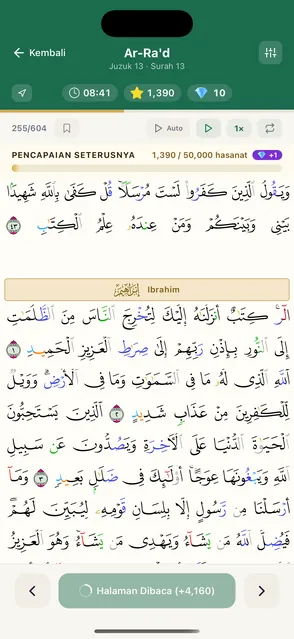 Kembali
Ar-Ra'd
Juzuk 13 · Surah 13
08:41
1,390
10
255/604
Auto
1×
PENCAPAIAN SETERUSNYA
1,390 / 50,000 hasanat
+1
وَيَقُولُ ٱلَّذِينَ كَفَرُوا۟ لَسْتَ مُرْسَلًا ۚ قُلْ كَفَىٰ بِٱللَّهِ شَهِيدًۢا
بَيْنِى وَبَيْنَكُمْ وَمَنْ عِندَهُۥ عِلْمُ ٱلْكِتَـٰبِ ٤٣
إبراهيم Ibrahim
الٓر ۚ كِتَـٰبٌ أَنزَلْنَـٰهُ إِلَيْكَ لِتُخْرِجَ ٱلنَّاسَ مِنَ ٱلظُّلُمَـٰتِ
إِلَى ٱلنُّورِ بِإِذْنِ رَبِّهِمْ إِلَىٰ صِرَٰطِ ٱلْعَزِيزِ ٱلْحَمِيدِ ١
ٱللَّهِ ٱلَّذِى لَهُۥ مَا فِى ٱلسَّمَـٰوَٰتِ وَمَا فِى ٱلْأَرْضِ ۗ وَوَيْلٌ
لِّلْكَـٰفِرِينَ مِنْ عَذَابٍ شَدِيدٍ ٢ ٱلَّذِينَ يَسْتَحِبُّونَ
ٱلْحَيَوٰةَ ٱلدُّنْيَا عَلَى ٱلْـَٔاخِرَةِ وَيَصُدُّونَ عَن سَبِيلِ
ٱللَّهِ وَيَبْغُونَهَا عِوَجًا ۚ أُو۟لَـٰٓئِكَ فِى ضَلَـٰلٍۭ بَعِيدٍ ٣ وَمَآ
أَرْسَلْنَا مِن رَّسُولٍ إِلَّا بِلِسَانِ قَوْمِهِۦ لِيُبَيِّنَ لَهُمْ ۖ
فَيُضِلُّ ٱللَّهُ مَن يَشَآءُ وَيَهْدِى مَن يَشَآءُ ۚ وَهُوَ ٱلْعَزِيزُ
Halaman Dibaca (+4,160)